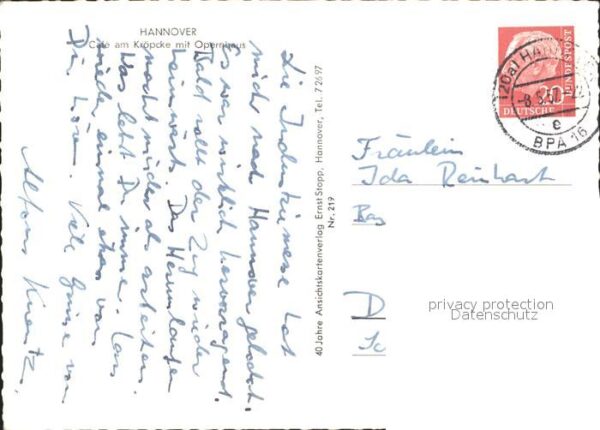 HANNOVER
Café am Kröpcke mit Opernhaus
Die Industriemesse hat
mich nach Hannover gelockt.
Es war wirklich hervorragend.
Bald rollt der Zug wieder
heimwärts. Das Herumlaufen
macht müder als arbeiten.
Was lebt Du immer. Lass
wieder einmal etwas von
Dir hören. Viele Grüsse von
Alfons
40 Jahre Ansichtskartenverlag Ernst Stopp, Hannover, Tel. 7 26 97
Nr. 219
20
DEUTSCHE BUNDESPOST
(20a) HANNOVER
e
BPA 16
Fräulein
Ida Reinhart
D
privacy protection
Datenschutz